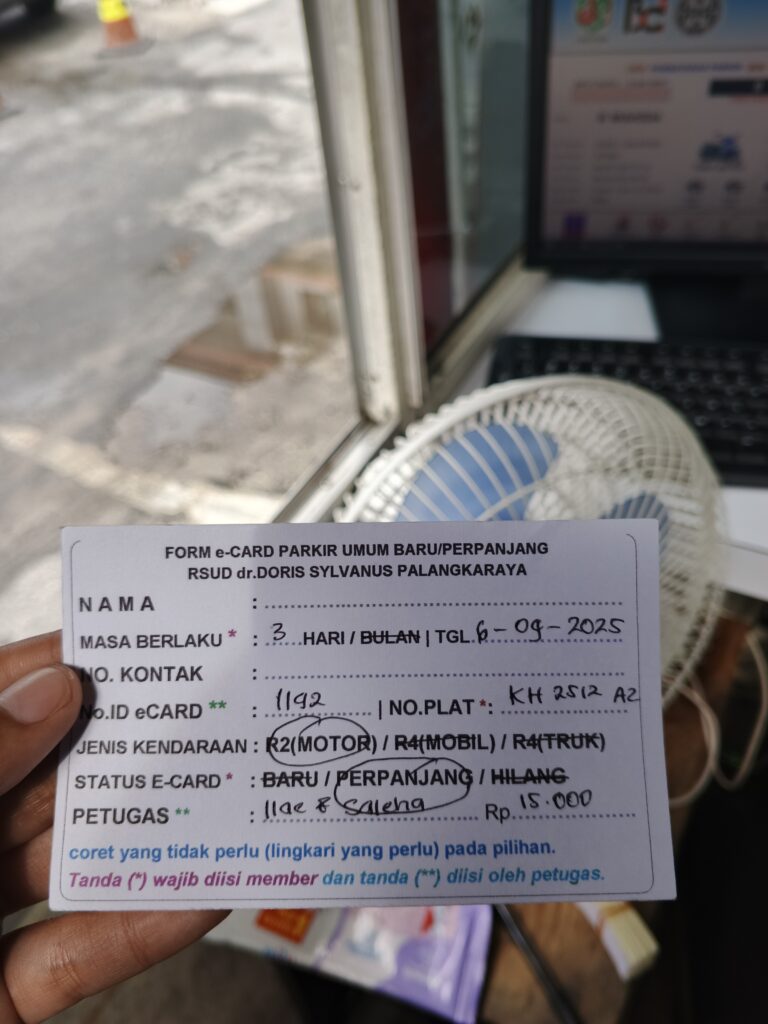 FORM e-CARD PARKIR UMUM BARU/PERPANJANG
RSUD dr.DORIS SYLVANUS PALANGKARAYA
NAMA : ..........
MASA BERLAKU * : 3 HARI / BULAN | TGL. 6-09-2025
NO. KONTAK : ..........
No.ID eCARD ** : 1192 | NO.PLAT *: KH 2512 AZ
JENIS KENDARAAN : R2(MOTOR) / R4(MOBIL) / R4(TRUK)
STATUS E-CARD * : BARU / PERPANJANG / HILANG
PETUGAS ** : Ilae & Saleha Rp. 15.000
coret yang tidak perlu (lingkari yang perlu) pada pilihan.
Tanda (*) wajib diisi member dan tanda (**) diisi oleh petugas.